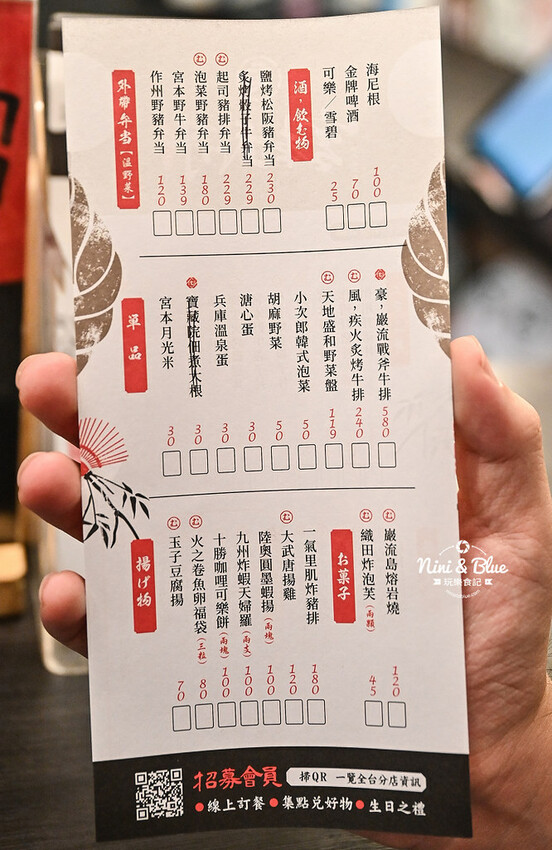 酒，飲む物
海尼根 100
金牌啤酒 70
可樂／雪碧 25
外帶弁当【温野菜】
鹽烤松阪豬弁当 230
炙烤骰子牛弁当 229
起司豬排弁当 229
泡菜野豬弁当 180
宮本野牛弁当 139
作州野豬弁当 120
單品
豪，巖流戰斧牛排 580
風，疾火炙烤牛排 240
天地盛和野菜盤 119
小次郎韓式泡菜 50
胡麻野菜 50
溏心蛋 30
兵庫溫泉蛋 30
寶藏院佃煮大根 30
宮本月光米 30
お菓子
巖流島熔岩燒 120
織田炸泡芙(兩顆) 45
揚げ物
一氣里肌炸豬排 180
大武唐揚雞 120
陸奧圓墨蝦揚(兩塊) 100
九州炸蝦天婦羅(兩支) 100
十勝咖哩可樂餅(兩塊) 100
火之卷魚卵福袋(三粒) 80
玉子豆腐揚 70
Nini & Blue
玩樂食記
招募會員 掃QR 一覽全台分店資訊
●線上訂餐 ●集點兌好物 ●生日之禮